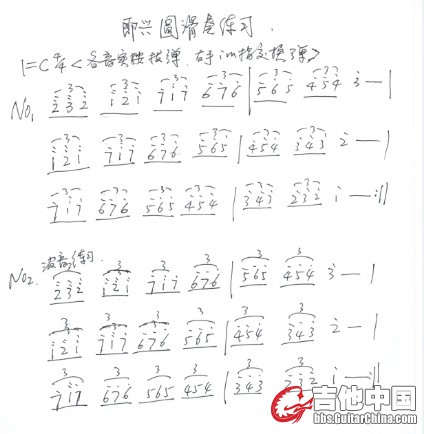 即兴圆滑音练习.
1=C 4/4 <各音实按拨弹. 右手im指交换弹>
No1 232 121 717 676 | 565 454 3 — |
121 717 676 565 | 454 343 2 — |
717 676 565 454 | 343 232 1 — :||
No2. 波音练习.
232 121 717 676 | 565 454 3 — |
121 717 676 565 | 454 343 2 — |
717 676 565 454 | 343 232 1 — :||
吉他中国
bbs.GuitarChina.com